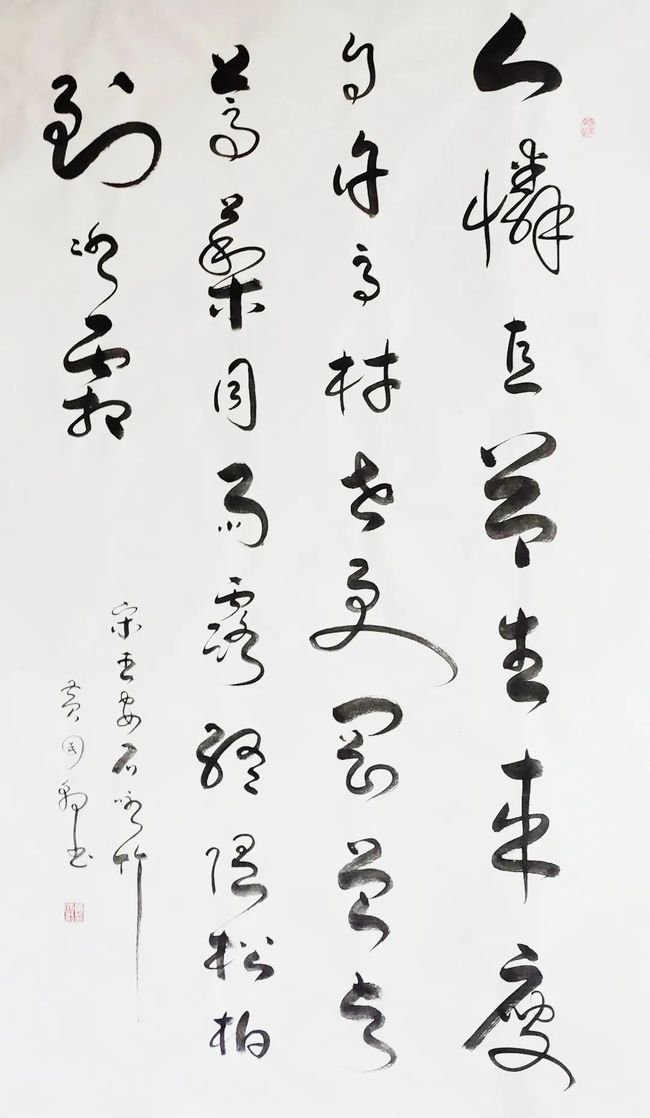 人憐直節生来瘦
自许高材老更剛曾与
蒿藜同雨露終随松柏
到冰霜
宋王安石咏竹
黄国书